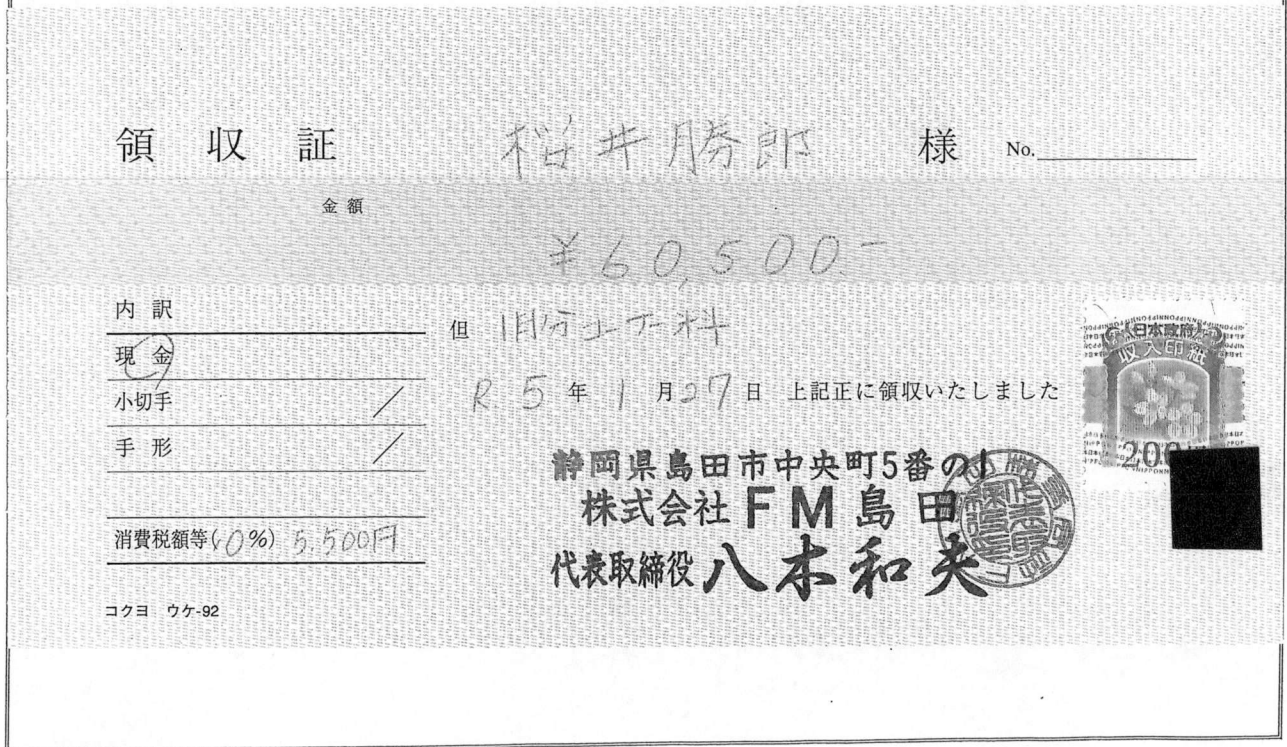 領収証 桜井勝郎 様 No.
金額
¥60,500.-
内訳
現金
小切手 /
手形 /
消費税額等(10%) 5,500円
但 1月分エアー料
R.5年1月27日 上記正に領収いたしました
日本政府
収入印紙
200
静岡県島田市中央町5番の1
株式会社FM島田
代表取締役 八木和夫
コクヨ ウケ-92